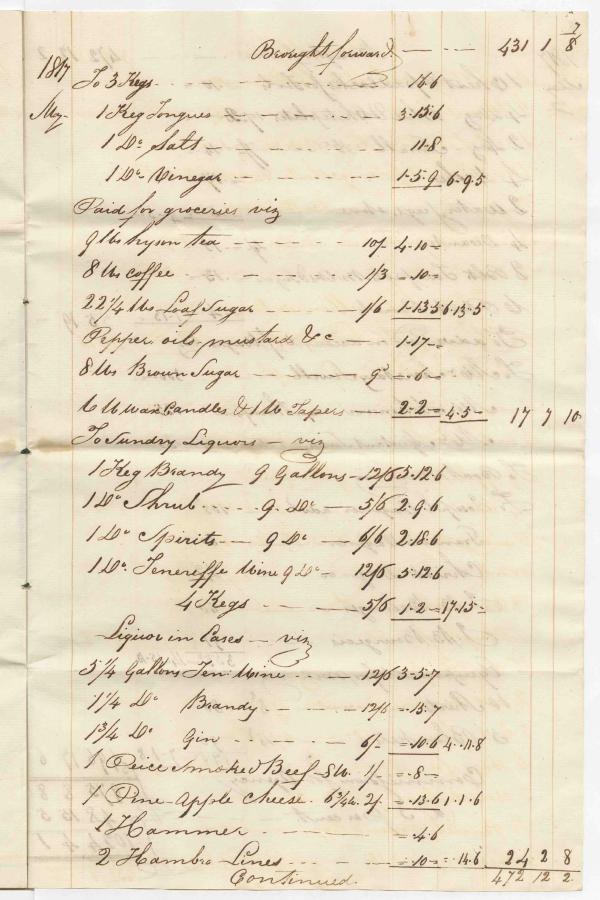 7
Brought forward. — — 431 1 8
1817
To 3 Kegs. 16.6
May 1 Keg Tongues 3.15.6
1 Do Salt 11.8
1 Do Vinegar 1.5.9 6.9.5
Paid for groceries viz
9 lbs hyson tea 10/- 4.10 =
8 lbs coffee 1/3 = 10 =
22¼ lbs Loaf Sugar 1/6 1.13.5 6.13.5
Pepper, oils, mustard &c 1.17 =
8 lbs Brown Sugar 9d = 6 =
6 lb wax Candles & 1 lb Tapers 2.2 = 4.5 = 17 7 10
To Sundry Liquors — viz
1 Keg Brandy 9 Gallons 12/6 5.12.6
1 Do Shrub 9 Do 5/6 2.9.6
1 Do Spirits 9 Do 6/6 2.18.6
1 Do Teneriffe Wine 9 Do 12/6 5.12.6
4 Kegs 5/6 1.2 = 17.15 =
Liquor in Cases — viz
5¼ Gallons Ten: Wine 12/6 3.5.7
1¼ Do Brandy 12/6 = 15.7
1¾ Do Gin 6/- = 10.6 4.11.8
1 Peice Smoked Beef 8 lb. 1/- = 8 =
1 Pine-Apple Cheese 6¾ lb. 2/- = 13.6 1.1.6
1 Hammer = 4.6
2 Hambro Lines = 10 = = 14.6 24 2 8
Continued. 472 12 2